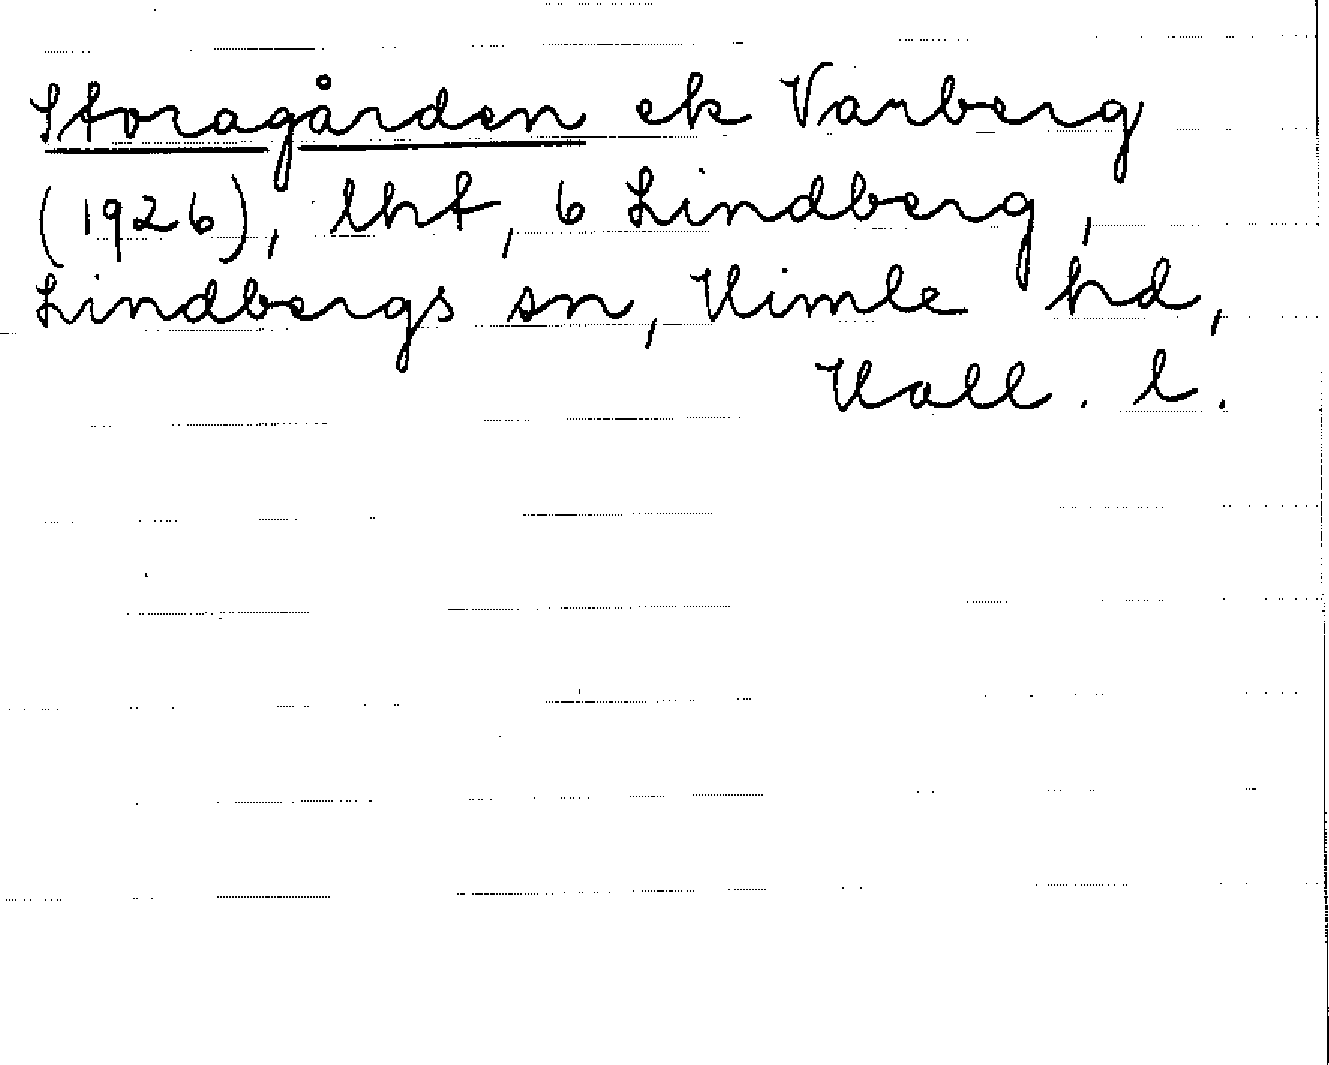 Storagården ek Varberg
(1926), lht, 6 Lindberg,
Lindbergs sn, Himle hd,
Hall. l.